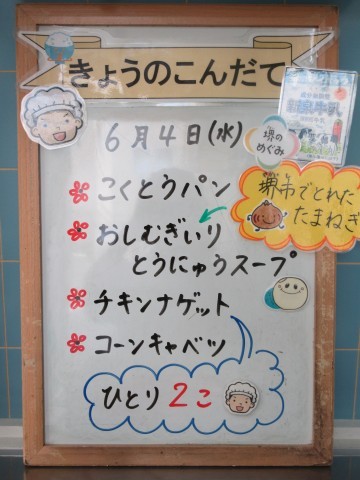 きょうのこんだて
6月4日(水)
堺の
めぐみ
こくとうパン
堺市でとれた
たまねぎ
おしむぎいり
とうにゅうスープ
チキンナゲット
コーンキャベツ
ひとり 2こ